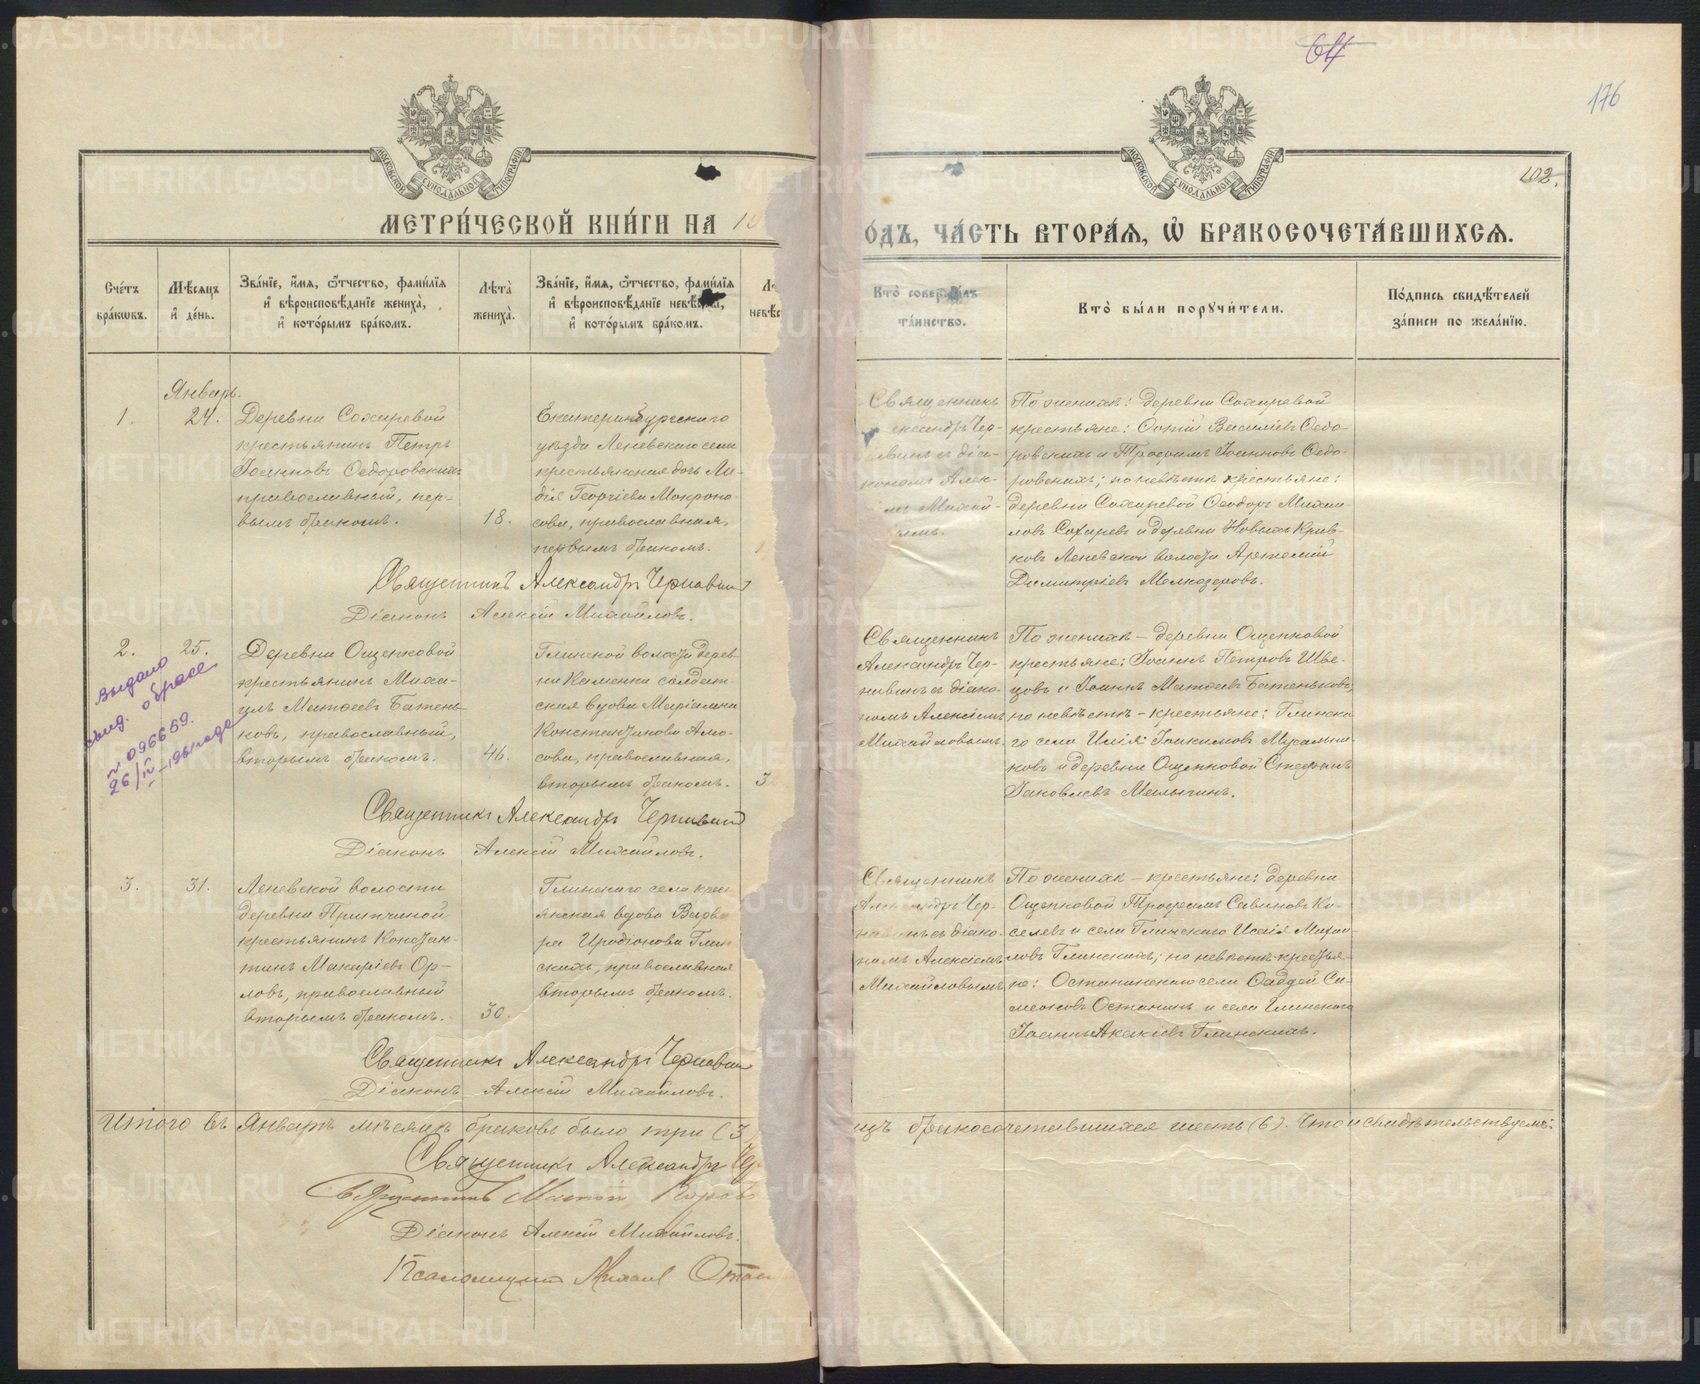 64
176
102.
МОСКОВСКОЙ СѴНОДАЛЬНОЙ ТИПОГРАФІИ
МОСКОВСКОЙ СѴНОДАЛЬНОЙ ТИПОГРАФІИ
МЕТРИ́ЧЕСКОЙ КНИ́ГИ НА 1
ОДЪ, ЧА́СТЬ ВТОРА́Я, Ѽ БРАКОСОЧЕТА́ВШИХСЯ.
Сче́тъ бра́кѡвъ.
Мѣ́сяцъ и҆ де́нь.
Зва́нїе, и҆́мя, ѻ҆́тчество, фамѝлїя
и҆ вѣроисповѣ́данїе жениха̀,
и҆ кото́рымъ бра́комъ.
Лѣ́та жениха̀.
Зва́нїе, и҆́мя, ѻ҆́тчество, фамѝлїя
и҆ вѣроисповѣ́данїе невѣ́сты,
и҆ кото́рымъ бра́комъ.
Кто̀ соверша́лъ
та́инство.
Кто̀ бы́ли порꙋчи́тели.
По́дпись свидѣ́телей
за́писи по жела́нїю.
Январь.
1.
24.
Деревни Сохаревой
крестьянинъ Петръ
Іоанновъ Ѳедоровскихъ
православный, пер-
вымъ бракомъ.
18.
Екатеринбургскаго
уѣзда Леневскаго села
крестьянская дочь Ли-
дія Георгіева Мокроно-
сова, православная,
первымъ бракомъ.
Священникъ
ександръ Чер-
навинъ съ діа-
кономъ Алек-
Михай-
По женихѣ: деревни Сохаревой
крестьяне: Василіевъ Ѳедо-
ровскихъ и Трофимъ Іоанновъ Ѳедо-
ровскихъ; по невѣстѣ крестьяне:
деревни Сохаревой Ѳеодоръ Михаи-
ловъ Сохаревъ и деревни Новыхъ Крив-
ковъ Леневской волости Артемій
Димитріевъ Мелкозеровъ.
Священникъ Александръ Чернавин
Діаконъ Алексій Михайловъ.
2.
25.
Деревни Ощепковой
крестьянинъ Миха-
илъ Матѳеевъ Батень-
ковъ, православный,
вторымъ бракомъ.
46.
Глинской волости дерев-
ни Каменки солдат-
ская вдова Маріамна
Константинова Амо-
сова, православная,
вторымъ бракомъ.
3
Священникъ
Александръ Чер-
навинъ съ діако-
номъ Алексіемъ
Михайловымъ.
По женихѣ – деревни Ощепковой
крестьяне: Іоаннъ Петровъ Шве-
цовъ и Іоаннъ Матѳеевъ Батеньковъ,
по невѣстѣ – крестьяне: Глинска-
го села Илія Іоакимовъ Мусальни-
ковъ и деревни Ощепковой Стефанъ
Іаковлевъ Малыгинъ.
Выдано
свид. о браке
№ 096659.
26/IV
Священникъ Александръ Чернавин
Діаконъ Алексій Михайловъ.
3.
31.
Леневской волости
деревни Притчиной
крестьянинъ Констан-
тинъ Макаріевъ Ор-
ловъ, православный
вторымъ бракомъ.
30.
Глинскаго села крест-
янская вдова Варва-
ра Иродіонова Глин-
скихъ, православная
вторымъ бракомъ.
Священникъ
Александръ Чер-
навинъ съ діако-
номъ Алексіемъ
Михайловымъ
По женихѣ – крестьяне: деревни
Ощепковой Трофимъ Савиновъ Ки-
селевъ и села Глинскаго Исаія Михаи-
ловъ Глинскихъ; по невѣстѣ крестья-
не: Останинскаго села Ѳаддей Си-
меоновъ Останинъ и села Глинскаго
Іоаннъ Акакіевъ Глинскихъ.
Священникъ Александръ Чернавин
Діаконъ Алексій Михайловъ.
Итого въ Январѣ мѣсяцѣ браковъ было три (3
ицъ бракосочетавшихся шесть (6). Что и свидѣтельствуемъ:
Священникъ Александръ Чер
Священникъ
Діаконъ Алексій Михайловъ.
Псаломщикъ Михаил
METRIKI.GASO-URAL.RU